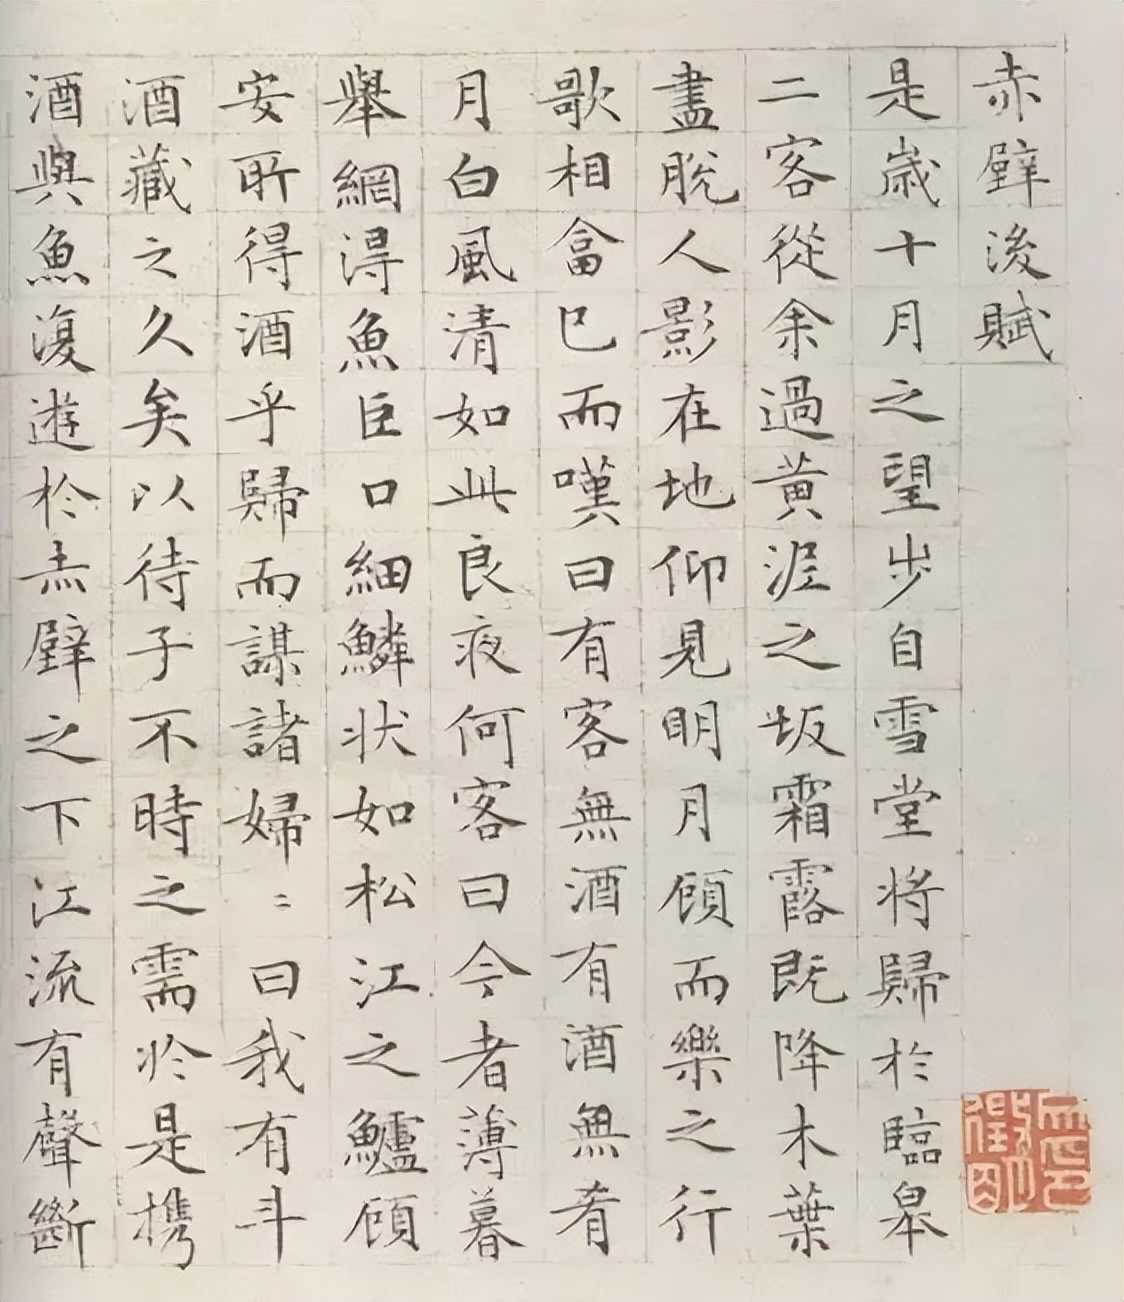 赤壁後賦
是歲十月之望步自雪堂将歸於臨皋
二客從余過黃泥之坂霜露既降木葉
盡脫人影在地仰見明月顧而樂之行
歌相畣已而嘆曰有客無酒有酒無肴
月白風清如此良夜何客曰今者薄暮
舉網得魚巨口細鱗状如松江之鱸顧
安所得酒乎歸而謀諸婦〻曰我有斗
酒藏之久矣以待子不時之需於是携
酒與魚復遊於赤壁之下江流有聲斷
徵明